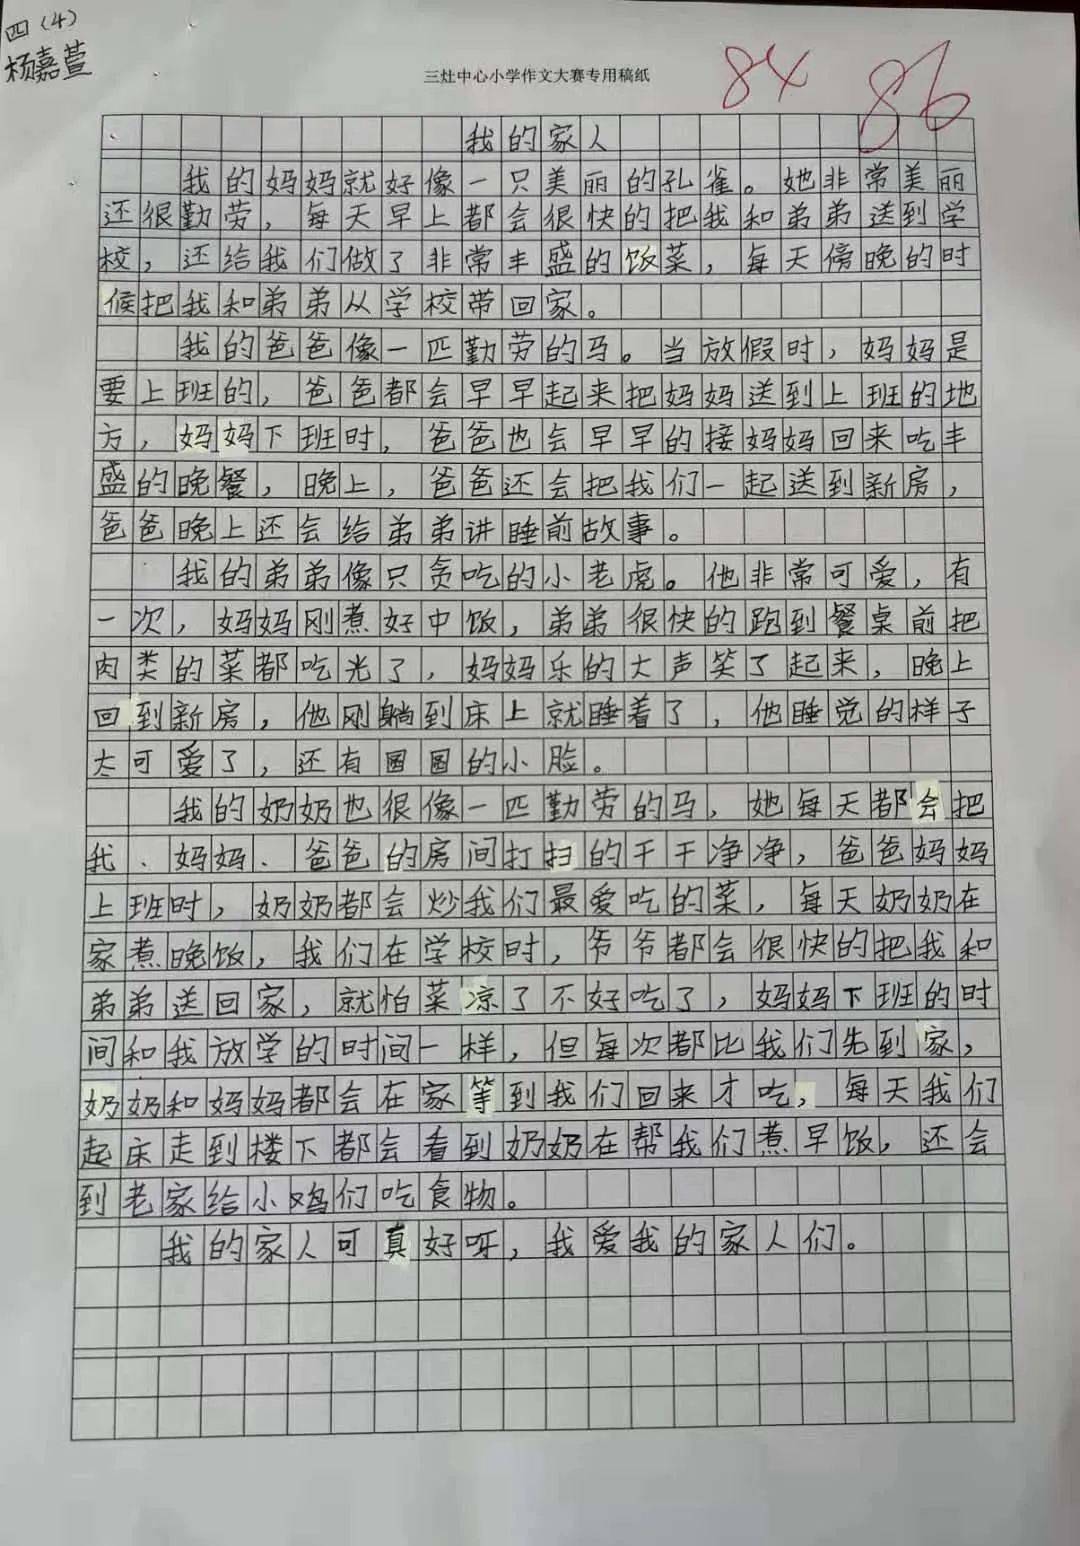 四(4)
杨嘉萱
三灶中心小学作文大赛专用稿纸
84
86
我的家人
我的妈妈就好像一只美丽的孔雀。她非常美丽
还很勤劳，每天早上都会很快的把我和弟弟送到学
校，还给我们做了非常丰盛的饭菜，每天傍晚的时
候把我和弟弟从学校带回家。
我的爸爸像一匹勤劳的马。当放假时，妈妈是
要上班的，爸爸都会早早起来把妈妈送到上班的地
方，妈妈下班时，爸爸也会早早的接妈妈回来吃丰
盛的晚餐，晚上，爸爸还会把我们一起送到新房，
爸爸晚上还会给弟弟讲睡前故事。
我的弟弟像只贪吃的小老虎。他非常可爱，有
一次，妈妈刚煮好中饭，弟弟很快的跑到餐桌前把
肉类的菜都吃光了，妈妈乐的大声笑了起来，晚上
回到新房，他刚躺到床上就睡着了，他睡觉的样子
太可爱了，还有圆圆的小脸。
我的奶奶也很像一匹勤劳的马，她每天都会把
我、妈妈、爸爸的房间打扫的干干净净，爸爸妈妈
上班时，奶奶都会炒我们最爱吃的菜，每天奶奶在
家煮晚饭，我们在学校时，爷爷都会很快的把我和
弟弟送回家，就怕菜凉了不好吃了，妈妈下班的时
间和我放学的时间一样，但每次都比我们先到家，
奶奶和妈妈都会在家等到我们回来才吃，每天我们
起床走到楼下都会看到奶奶在帮我们煮早饭，还会
到老家给小鸡们吃食物。
我的家人可真好呀，我爱我的家人们。